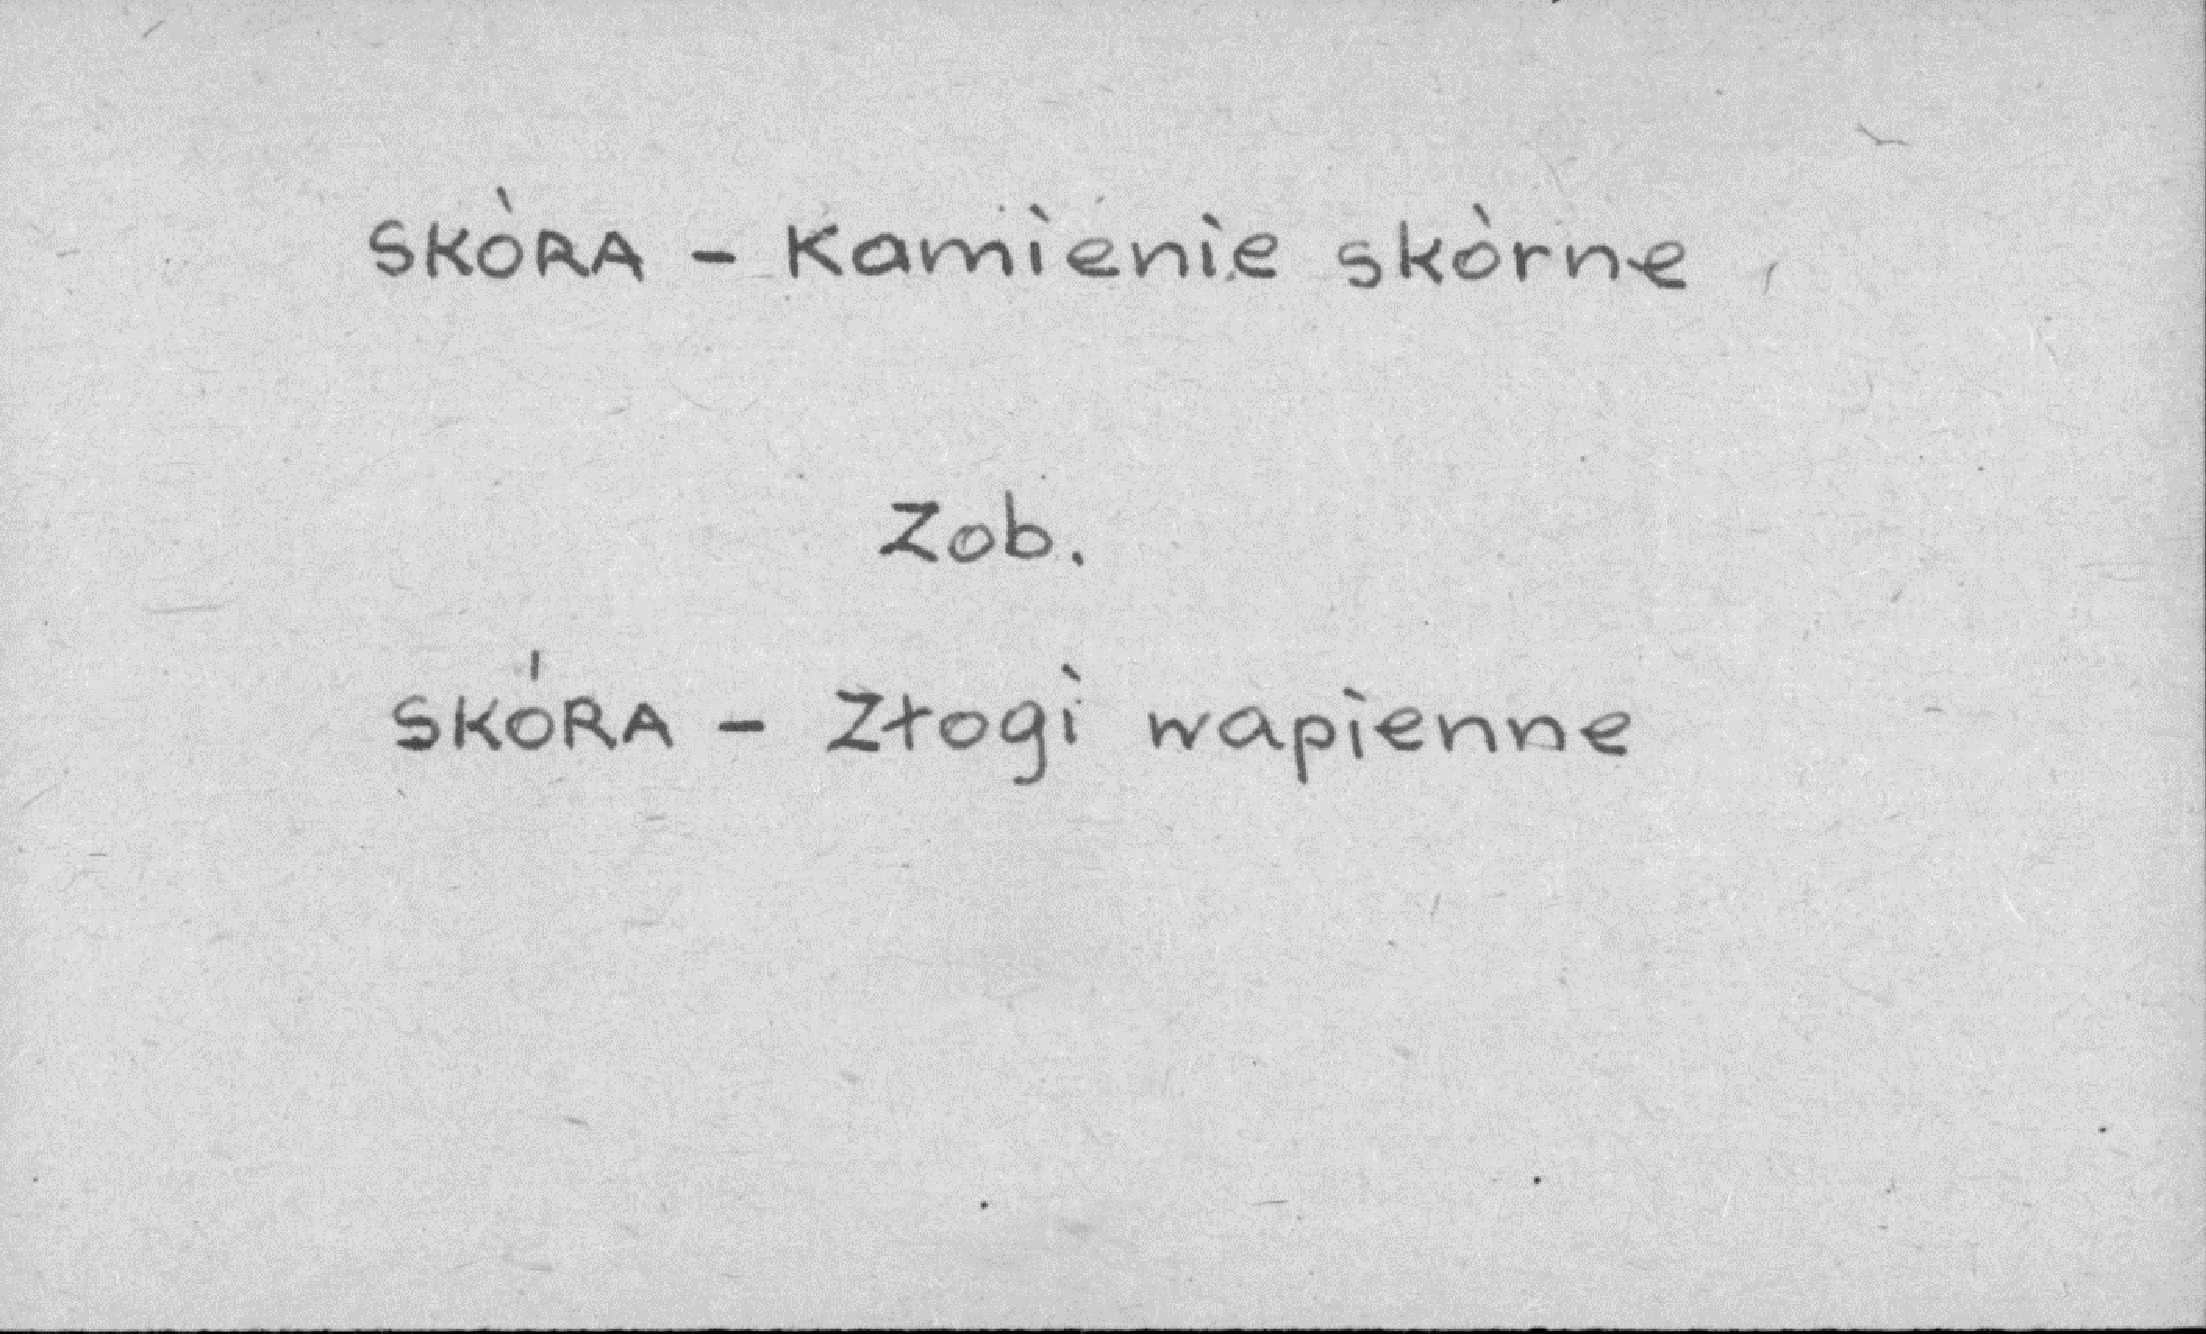 SKÓRA - Kamienie skórne
Zob.
SKÓRA - Złogi wapienne